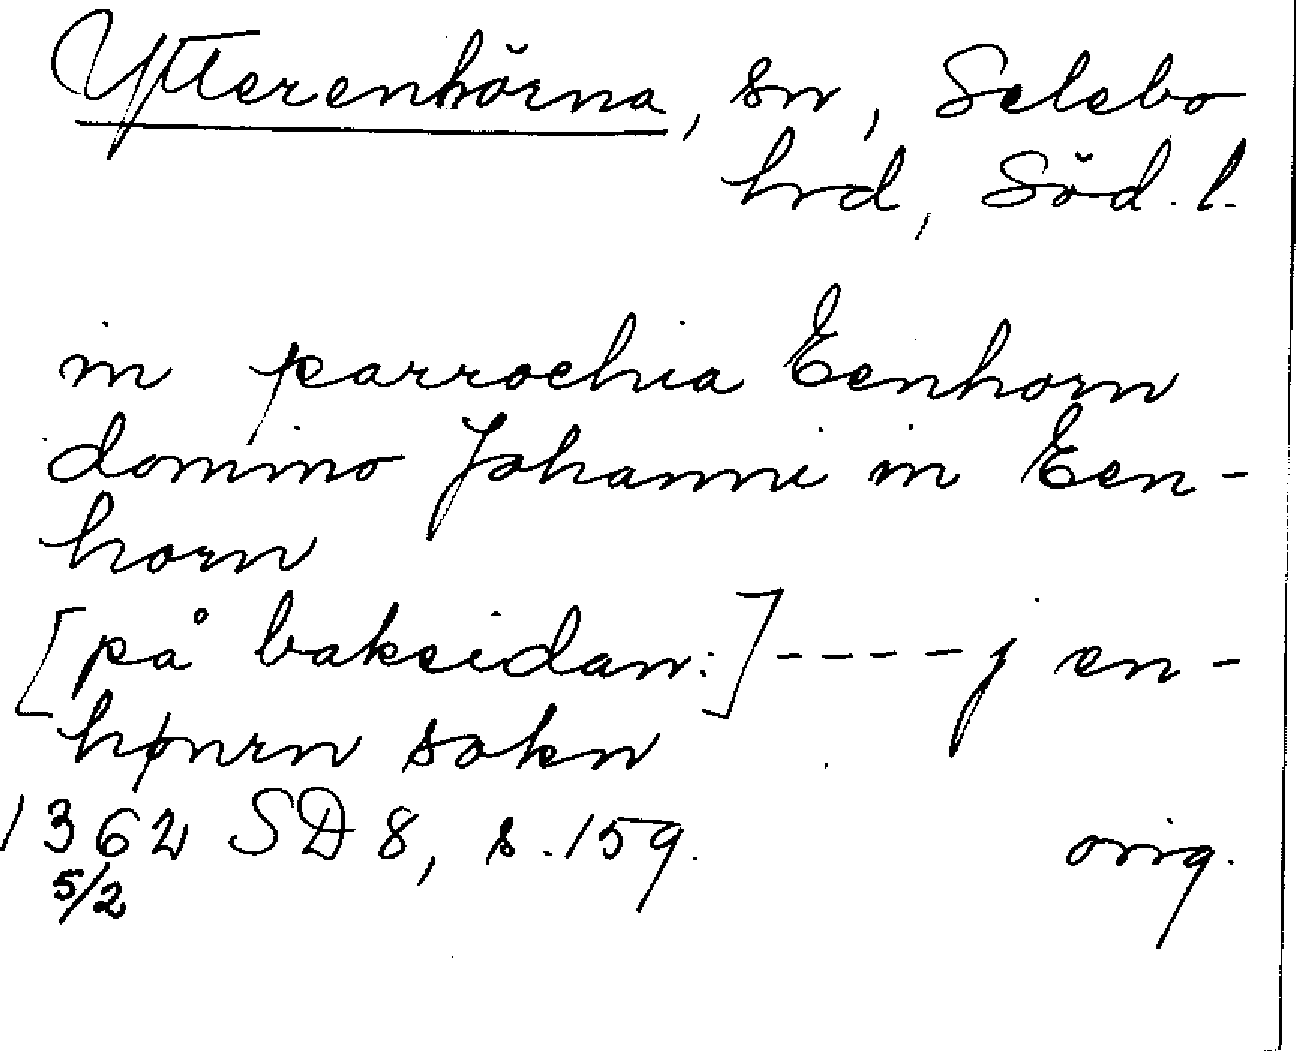 Ytterenhörna, sn, Selebo
hrd, Söd. l.
in parrochia Eenhorn
domino Johanni in Een-
horn
[på baksidan:] ---- j en-
hønrn sokn
1362 SD 8, s. 159. orig.
5/2